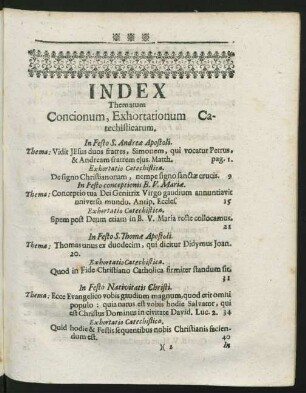 INDEX
Thematum
Concionum, Exhortationum Ca-
techisticarum,
In Festo S. Andreæ Apostoli.
Thema: Vidit JEsus duos fratres, Simonem, qui vocatur Petrus,
& Andream fratrem ejus. Matth. pag. 1.
Exhortatio Catechistica.
De signo Christianorum, nempe signo sanctæ crucis. 9
In Festo conceptionis B. V. Mariæ.
Thema: Conceptio tua Dei Genitrix Virgo gaudium annuntiavit
universo mundo. Antip, Eccles. 15
Exhortatio Catechistica.
Spem post Deum etiam in B. V. Maria recte collocamus.
21
In Festo S. Thomæ Apostoli.
Thema: Thomas unus ex duodecim, qui dicitur Didymus Joan.
20.
Exhortatio Catechistica.
Quod in Fide Christiano Catholica firmiter standum sit.
31
In Festo Nativitatis Christi.
Thema: Ecce Evangelico vobis gaudium magnum, quod erit omni
populo: quia natus est vobis hodie Salvator, qui
est Christus Dominus in civitate David, Luc. 2. 34
Exhortatio Catechistica.
Quid hodie & Festis sequentibus nobis Christianis facien-
dum est. 40
)( 2 In